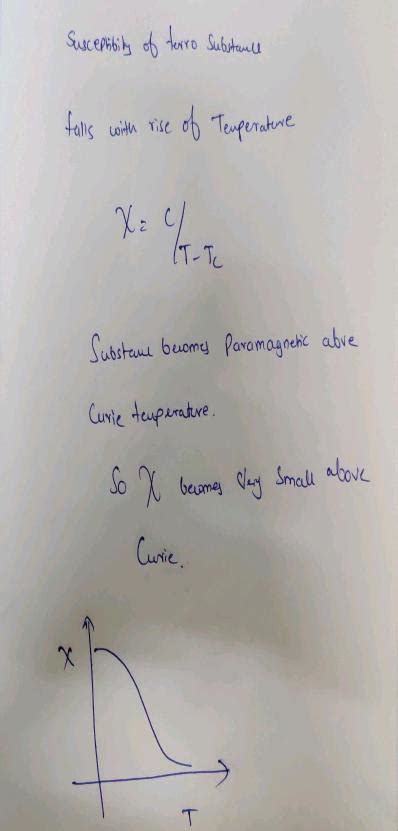 Susceptibility of ferro Substance
falls with rise of Temperature
χ = C/T-Tc
Substance becomes Paramagnetic above
Curie temperature.
So χ becomes Very Small above
Curie.
χ
T